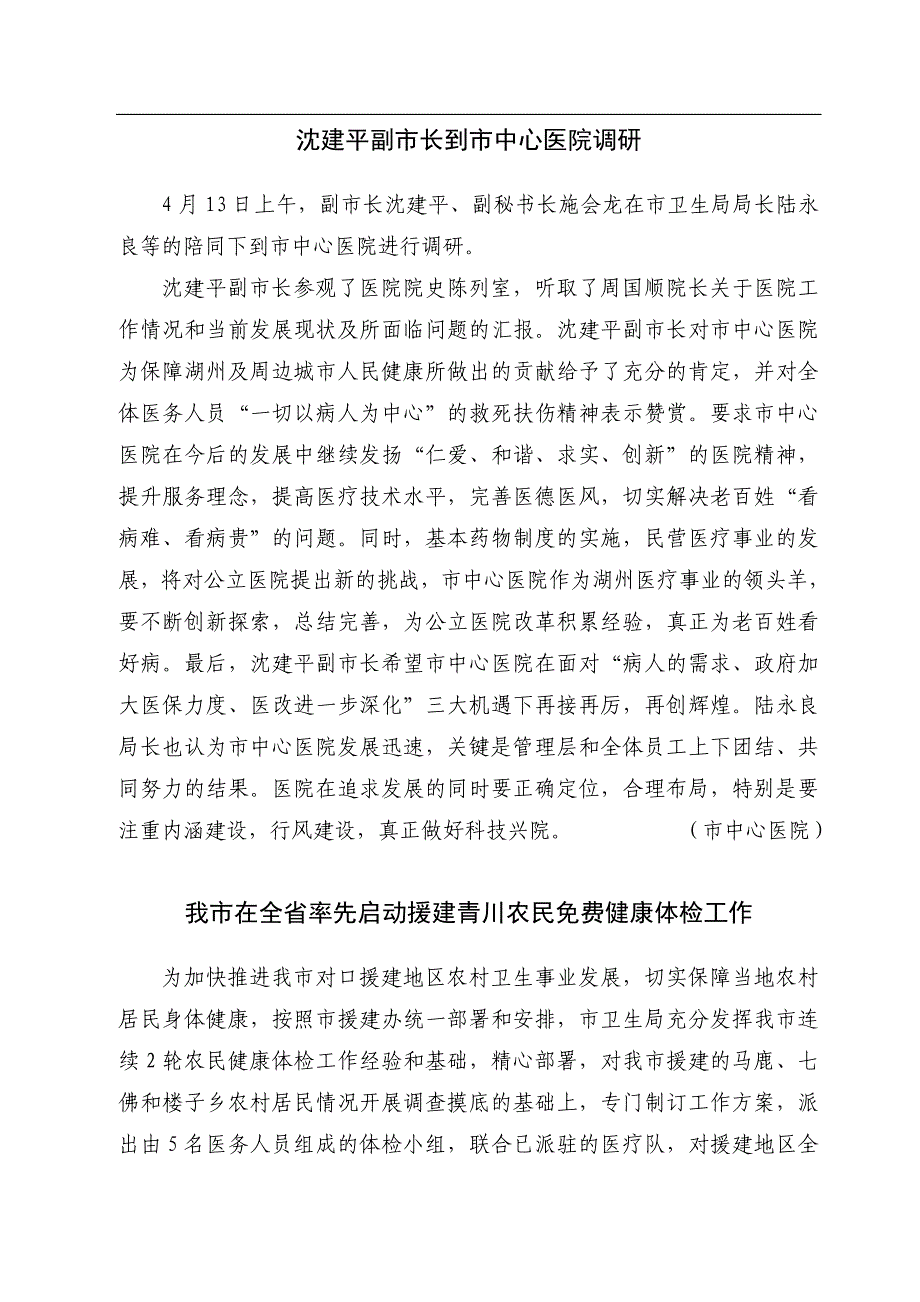 沈建平副市长到市中心医院调研
4月13日上午，副市长沈建平、副秘书长施会龙在市卫生局局长陆永
良等的陪同下到市中心医院进行调研。
沈建平副市长参观了医院院史陈列室，听取了周国顺院长关于医院工
作情况和当前发展现状及所面临问题的汇报。沈建平副市长对市中心医院
为保障湖州及周边城市人民健康所做出的贡献给予了充分的肯定，并对全
体医务人员“一切以病人为中心”的救死扶伤精神表示赞赏。要求市中心
医院在今后的发展中继续发扬“仁爱、和谐、求实、创新”的医院精神，
提升服务理念，提高医疗技术水平，完善医德医风，切实解决老百姓“看
病难、看病贵”的问题。同时，基本药物制度的实施，民营医疗事业的发
展，将对公立医院提出新的挑战，市中心医院作为湖州医疗事业的领头羊，
要不断创新探索，总结完善，为公立医院改革积累经验，真正为老百姓看
好病。最后，沈建平副市长希望市中心医院在面对“病人的需求、政府加
大医保力度、医改进一步深化”三大机遇下再接再厉，再创辉煌。陆永良
局长也认为市中心医院发展迅速，关键是管理层和全体员工上下团结、共
同努力的结果。医院在追求发展的同时要正确定位，合理布局，特别是要
注重内涵建设，行风建设，真正做好科技兴院。 （市中心医院）
我市在全省率先启动援建青川农民免费健康体检工作
为加快推进我市对口援建地区农村卫生事业发展，切实保障当地农村
居民身体健康，按照市援建办统一部署和安排，市卫生局充分发挥我市连
续2轮农民健康体检工作经验和基础，精心部署，对我市援建的马鹿、七
佛和楼子乡农村居民情况开展调查摸底的基础上，专门制订工作方案，派
出由5名医务人员组成的体检小组，联合已派驻的医疗队，对援建地区全